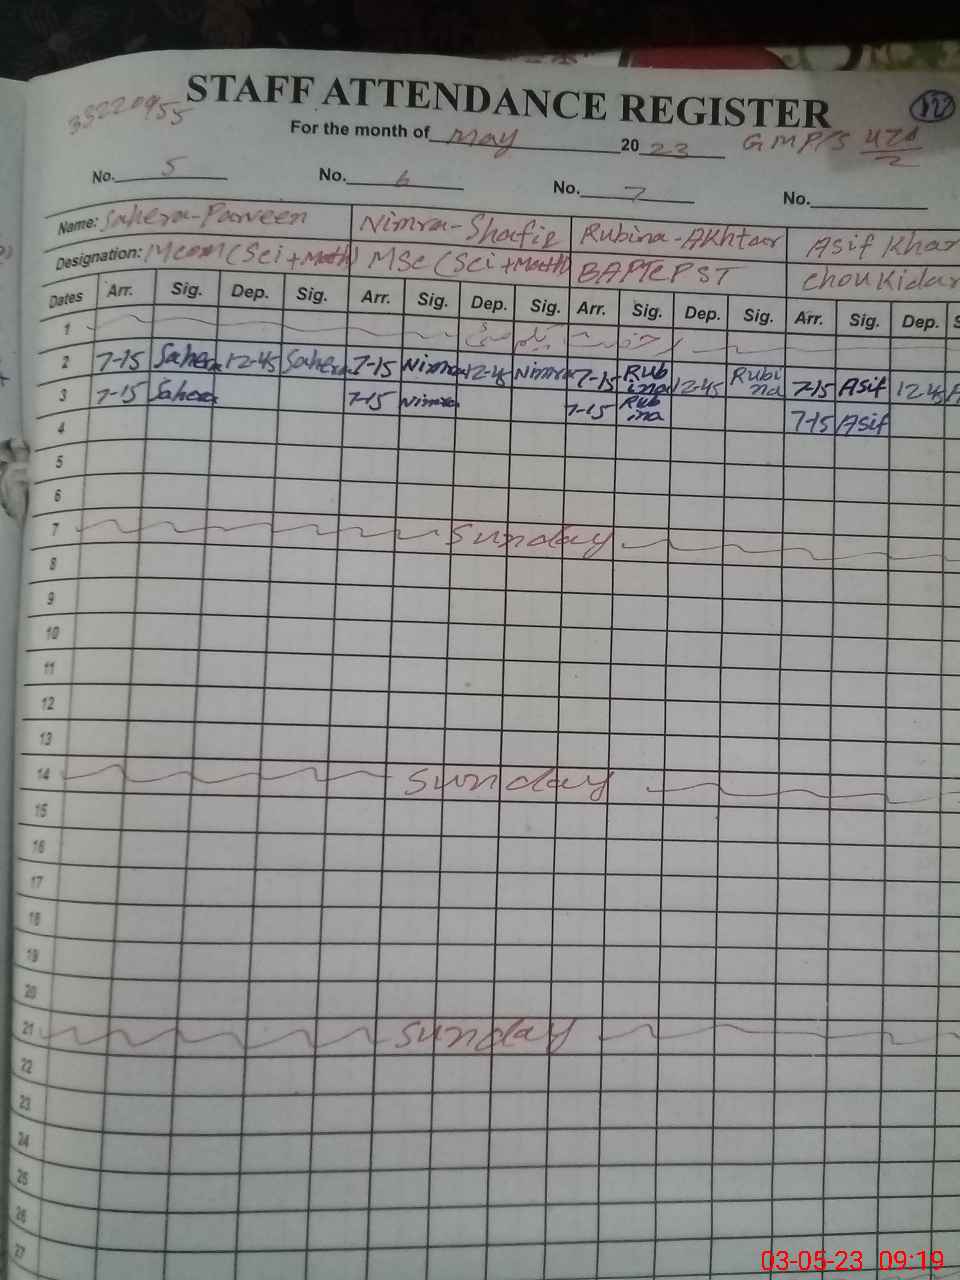 STAFF ATTENDANCE REGISTER
33220955
For the month of May 2023 GMP/S
No. 5 No. 6 No. 7 No.
Name: Sahera-Parveen Nimra-Shafiq Rubina-Akhtar Asif Khan
Designation: MCOM (Sci+Math) MSc (Sci+Math) BAPTCPST ChouKidar
Dates Arr. Sig. Dep. Sig. Arr. Sig. Dep. Sig. Arr. Sig. Dep. Sig. Arr. Sig. Dep. S
1
2 7-15 Sahera 12-45 Sahera 7-15 Nimra 12-45 Nimra 7-15 Rubina 12-45 Rubina 7-15 Asif 12-45 A
3 7-15 Sahera 7-15 Nimra 7-15 Rubina 7-15 Asif
4
5
6
7 Sunday
8
9
10
11
12
13
14 Sunday
15
16
17
18
19
20
21 Sunday
22
23
24
25
26
27
03-05-23 09:19